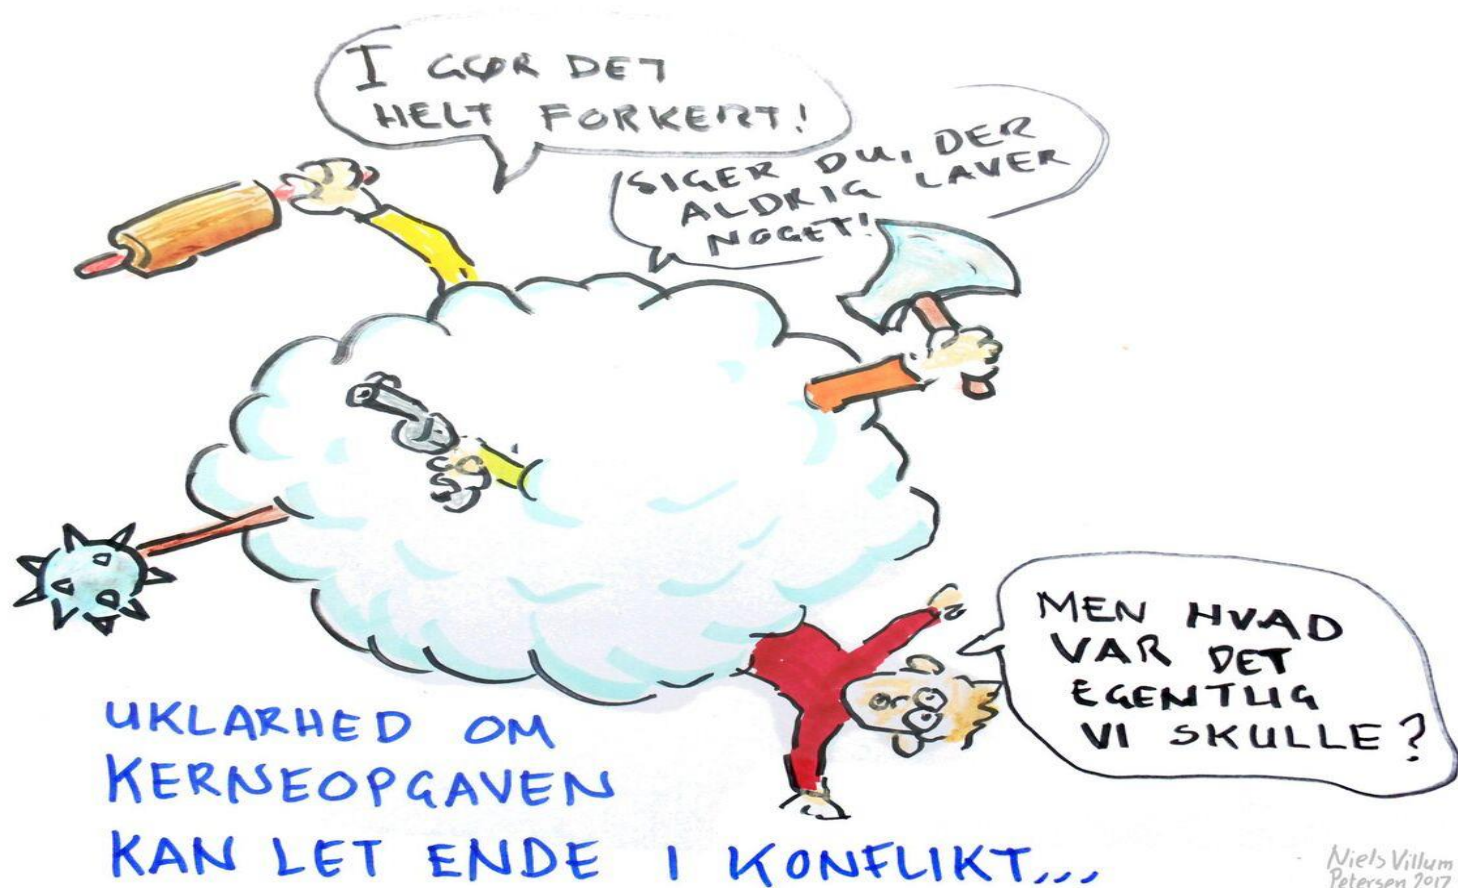 I GØR DET
HELT FORKERT!
SIGER DU, DER
ALDRIG LAVER
NOGET!
MEN HVAD
VAR DET
EGENTLIG
VI SKULLE?
UKLARHED OM
KERNEOPGAVEN
KAN LET ENDE I KONFLIKT...
Niels Villum
Petersen 2017